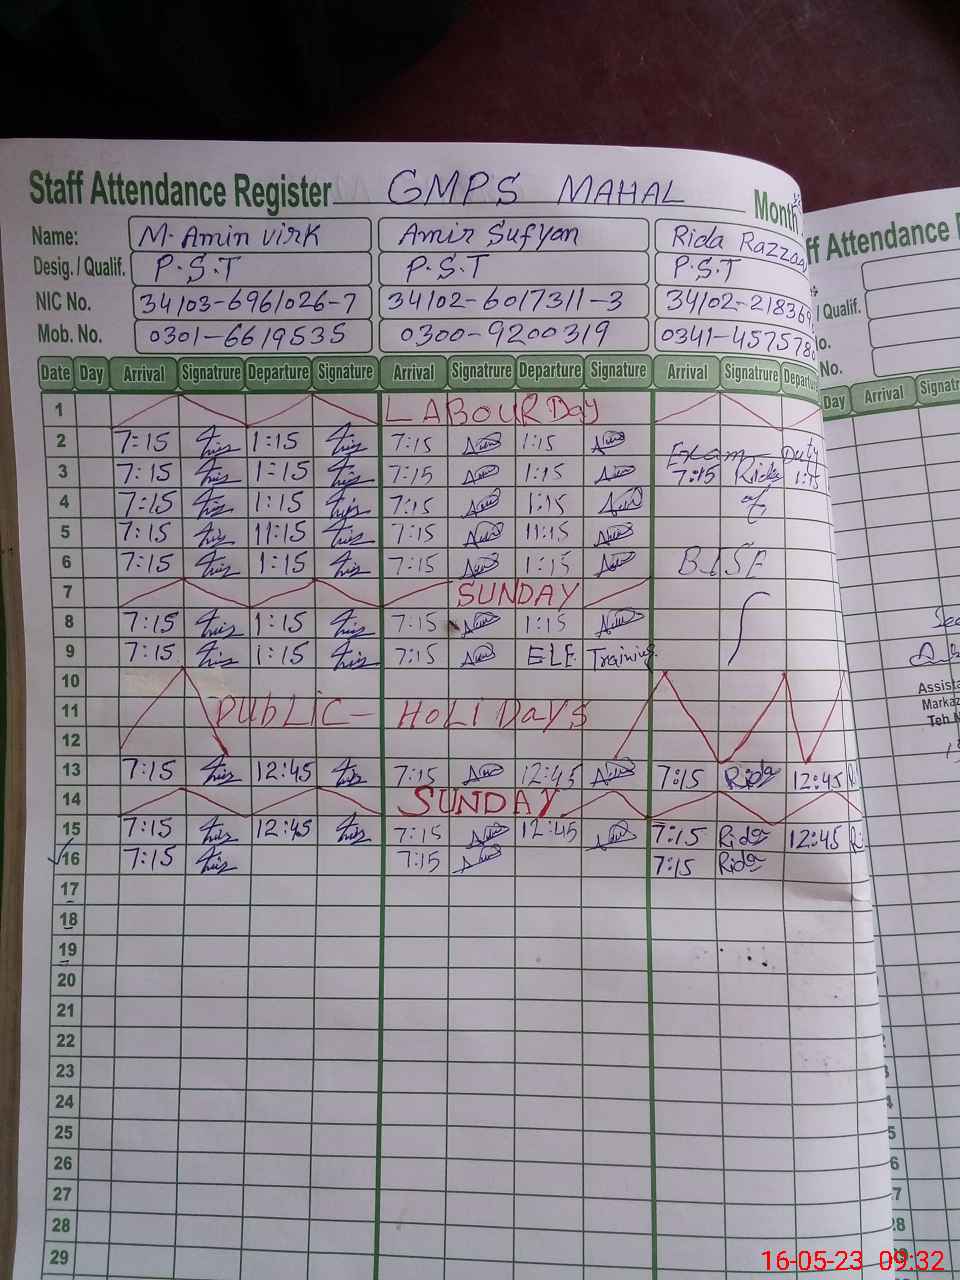 Staff Attendance Register GMPS MAHAL Month
Name: M. Amin Virk Amir Sufyan Rida Razzaq
Desig. / Qualif. P.S.T P.S.T P.S.T
NIC No. 34103-6961026-7 34102-6017311-3 34102-218369
Mob. No. 0301-6619535 0300-9200319 0341-4575786
Date Day Arrival Signatrure Departure Signature Arrival Signatrure Departure Signature Arrival Signatrure Departure
1 LABOUR Day
2 7:15 1:15 7:15 1:15 Exam Duty
3 7:15 1:15 7:15 1:15 7:15 Rida 1:15
4 7:15 1:15 7:15 1:15 of
5 7:15 11:15 7:15 11:15
6 7:15 1:15 7:15 1:15 BISE
7 SUNDAY
8 7:15 1:15 7:15 1:15
9 7:15 1:15 7:15 ELE Training
10
11 PUBLiC - HOLIDAYS
12
13 7:15 12:45 7:15 12:45 7:15 Rida 12:45
14 SUNDAY
15 7:15 12:45 7:15 12:45 7:15 Rida 12:45
16 7:15 7:15 7:15 Rida
17
18
19
20
21
22
23
24
25
26
27
28
29
ff Attendance
/ Qualif.
No.
Day Arrival Signatr
Assista
Markaz
Teh N
16-05-23 09:32